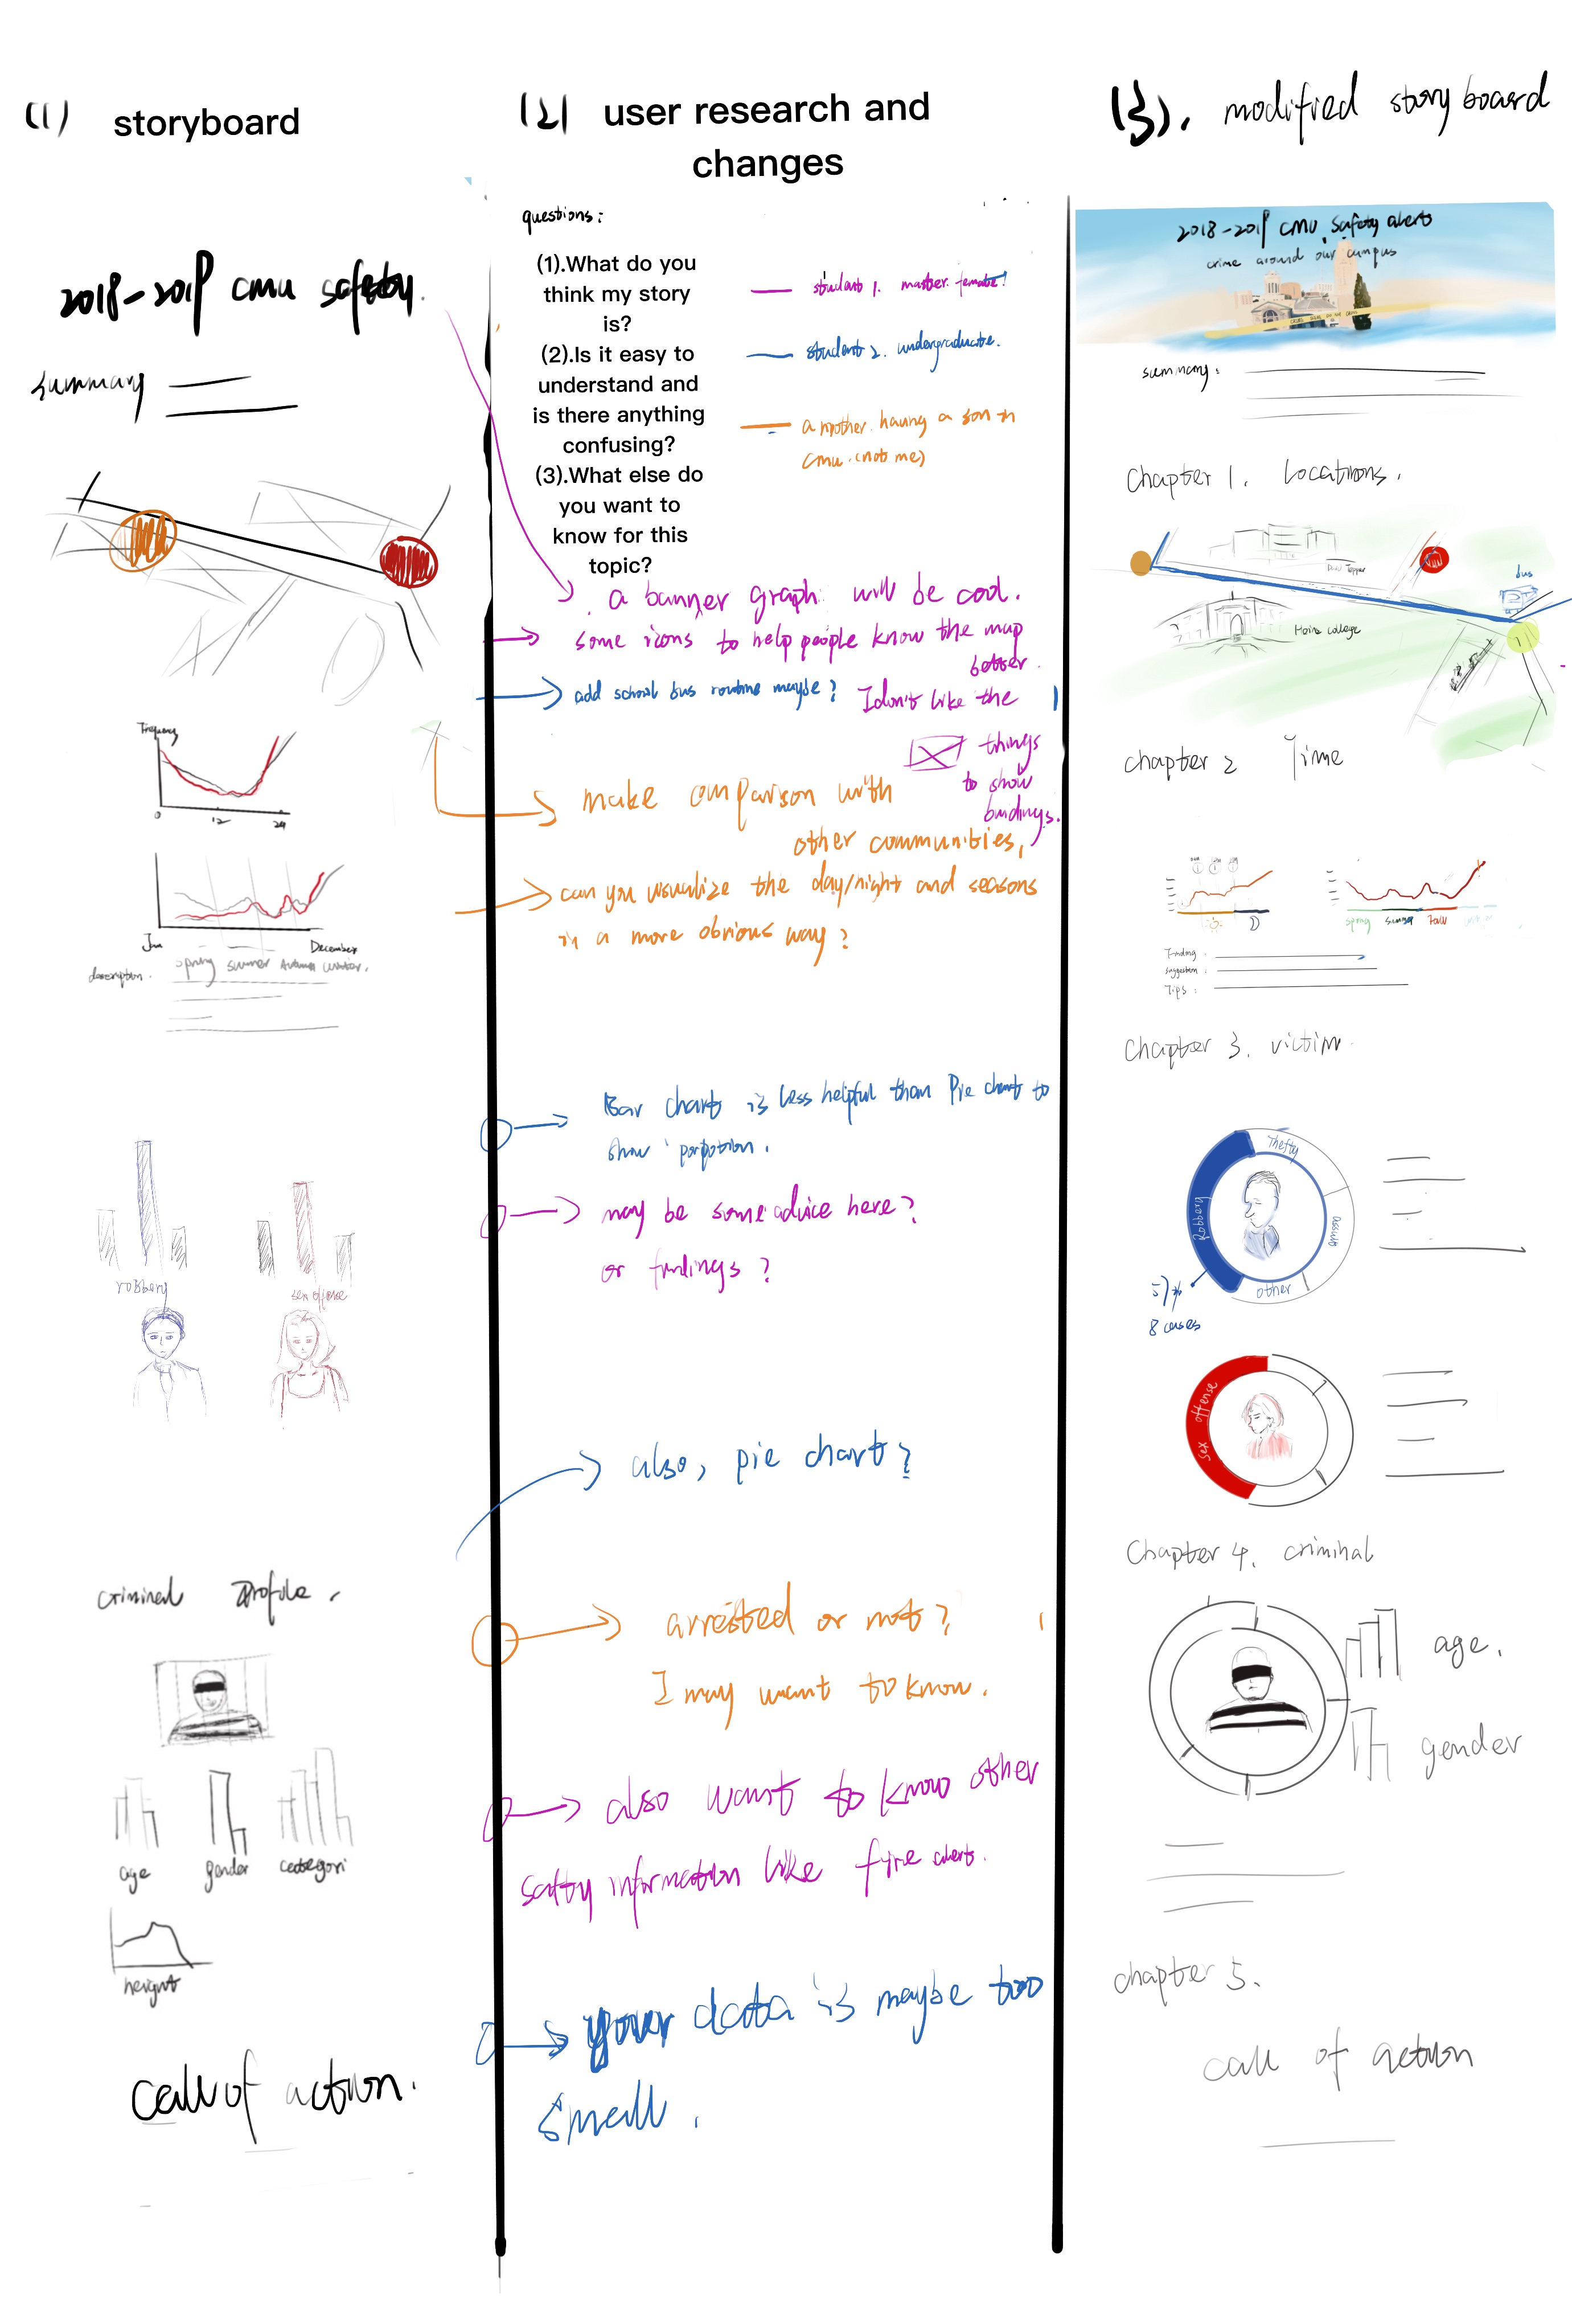 (1) storyboard
2018-2019 cmu safety.
summary
Frequency
0 12 24
Jan December
description. spring summer Autumn winter.
robbery
sex offense
criminal Profile.
age gender categori
height
call of action.
(2) user research and
changes
questions:
(1).What do you
think my story
is?
(2).Is it easy to
understand and
is there anything
confusing?
(3).What else do
you want to
know for this
topic?
student 1. master. female!
student 2. undergraduate.
a mother. having a son in
cmu. (not me)
. a banner graph will be cool.
some icons to help people know the map
better.
add school bus routine maybe?
I don't like the
things
to show
buildings.
make comparison with
other communities,
can you visualize the day/night and seasons
in a more obvious way?
Bar chart is less helpful than Pie chart to
show porpotion.
may be some advice here?
or findings?
also, pie chart?
arrested or not?
I may want to know.
also want to know other
safty information like fire alerts.
your data is maybe too
small.
(3). modified story board
2018-2019 cmu safety alerts
crime around our campus
summary:
Chapter 1. Locations.
Tepper
bus
Heinz college
chapter 2 Time
spring summer Fall
Finding:
suggestion:
Tips:
Chapter 3. victim.
Thefty
Robbery
other
57%
8 cases
sex offense
Chapter 4. criminal
age.
gender
chapter 5.
call of action